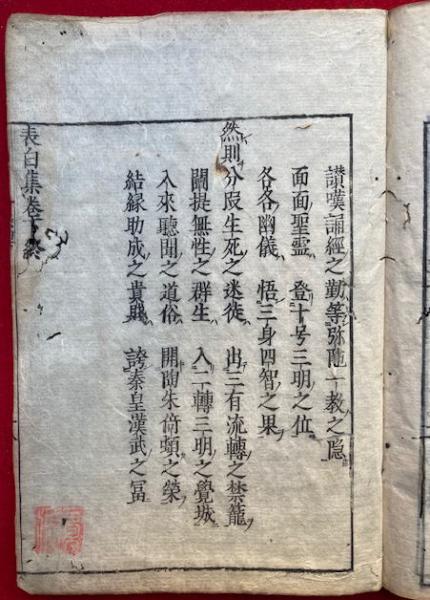 讃嘆誦經之勤等弥陁一教之隠
面面聖霊 登十号三明之位
各各幽儀 悟三身四智之果
然則分段生死之迷徒 出三有流轉之禁籠
闡提無性之群生 入二轉三明之覺城
入來聽聞之道俗 開陶朱倚頓之榮
結緑助成之貴賎 誇秦皇漢武之冨
表白集巻下終